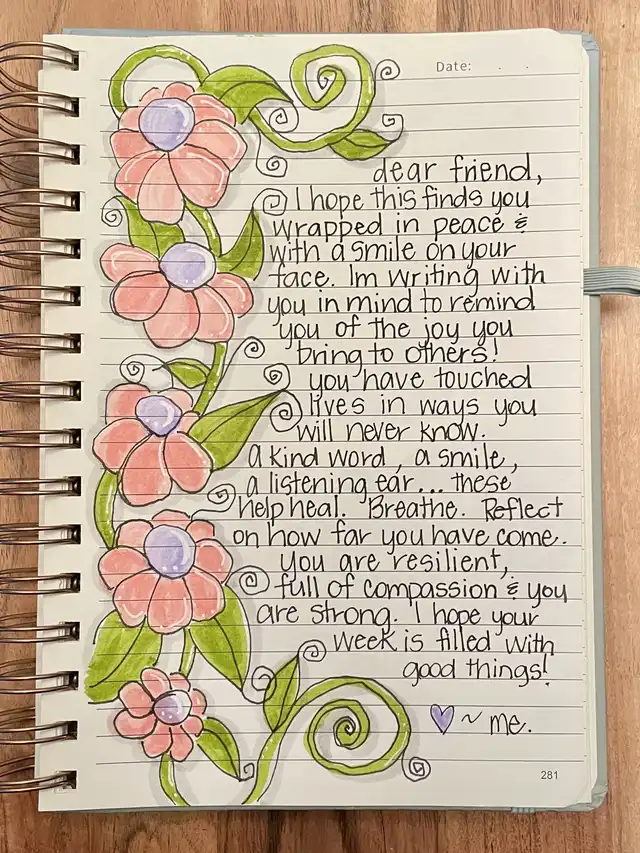 Date: . .
dear friend,
I hope this finds you
wrapped in peace &
with a smile on your
face. Im writing with
you in mind to remind
you of the joy you
bring to others!
you have touched
lives in ways you
will never know.
a kind word, a smile,
a listening ear... these
help heal. Breathe. Reflect
on how far you have come.
you are resilient,
full of compassion & you
are strong. I hope your
week is filled with
good things!
~ me.
281